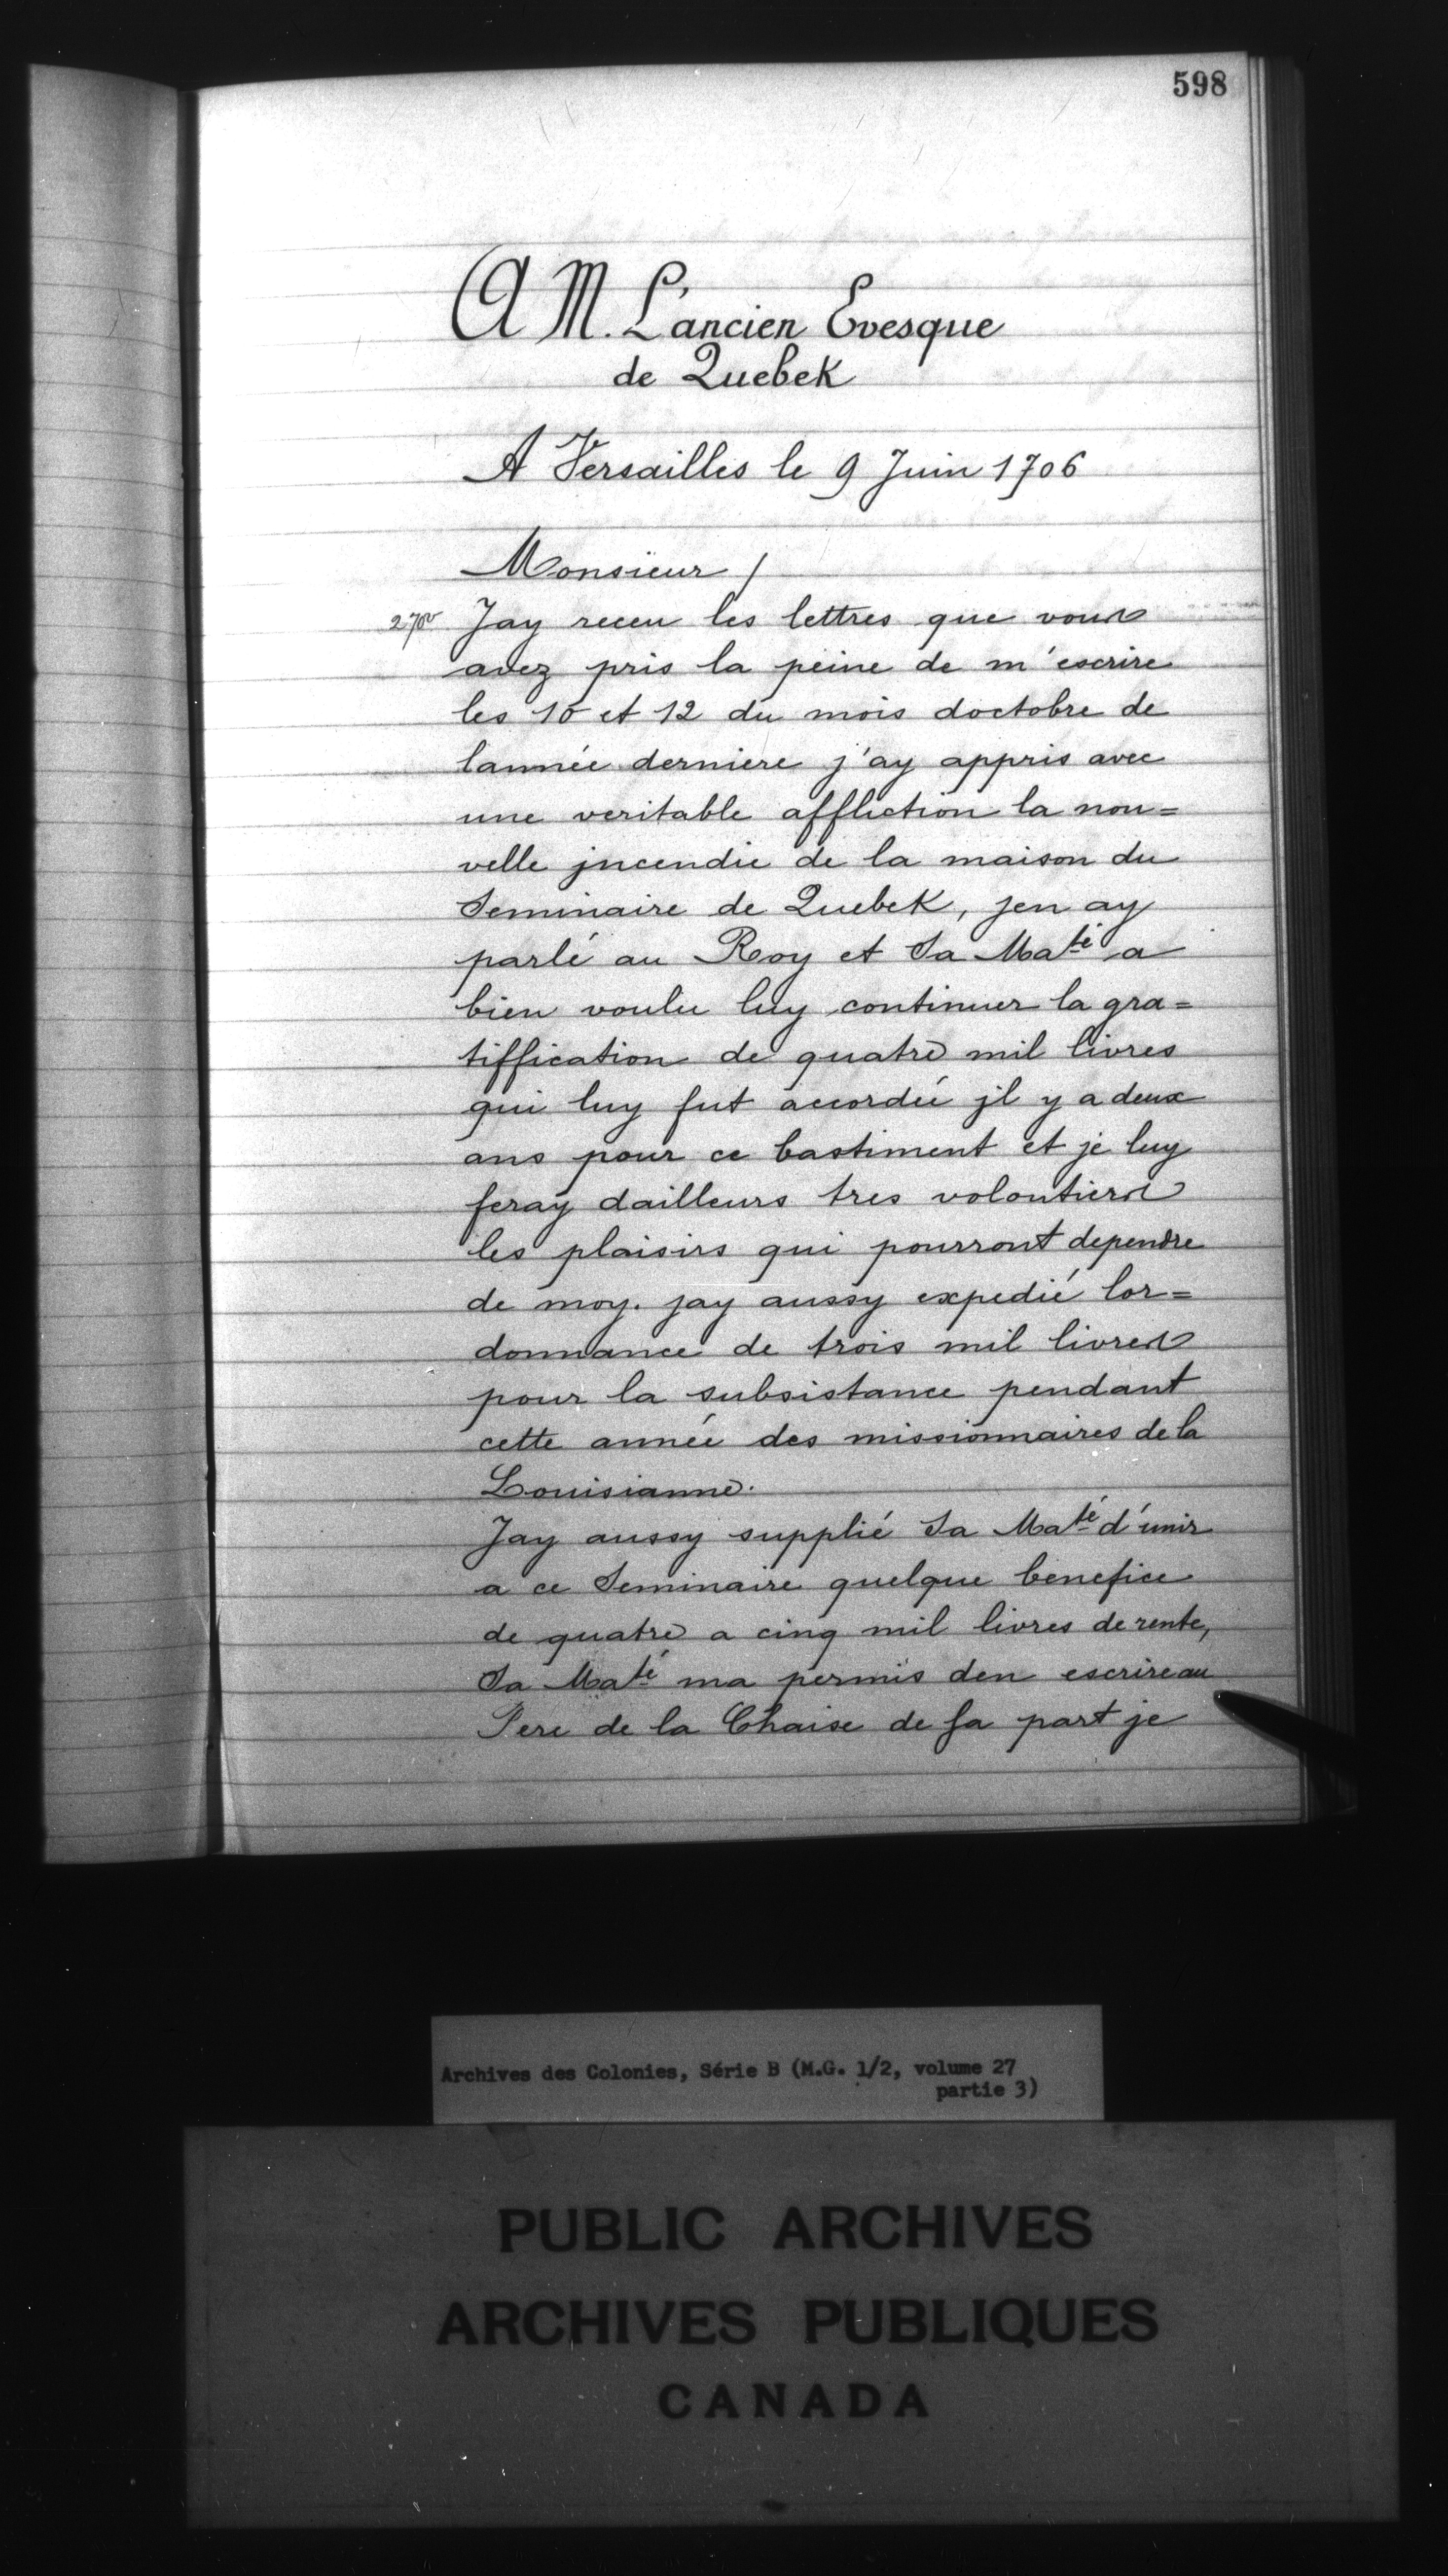 598
A M. L'ancien Evesque
de Quebek
A Versailles le 9 Juin 1706
Monsieur /
270v Jay receu les lettres que vous
avez pris la peine de m'escrire
les 10 et 12 du mois doctobre de
lannée derniere j'ay appris avec
une veritable affliction la nou=
velle jncendie de la maison du
Seminaire de Quebek, jen ay
parlé au Roy et Sa Maté a
bien voulu luy continuer la gra=
tiffication de quatre mil livres
qui luy fut accordée jl y a deux
ans pour ce bastiment et je luy
feray dailleurs tres volontiers
les plaisirs qui pourront dependre
de moy. jay aussy expedié lor=
donnance de trois mil livres
pour la subsistance pendant
cette année des missionnaires de la
Louisianne.
Jay aussy supplié Sa Maté d'unir
a ce Seminaire quelque benefice
de quatre a cinq mil livres de rente,
Sa Maté ma permis den escrire au
Pere de la Chaise de sa part je
Archives des Colonies, Série B (M.G. 1/2, volume 27
partie 3)
PUBLIC ARCHIVES
ARCHIVES PUBLIQUES
CANADA